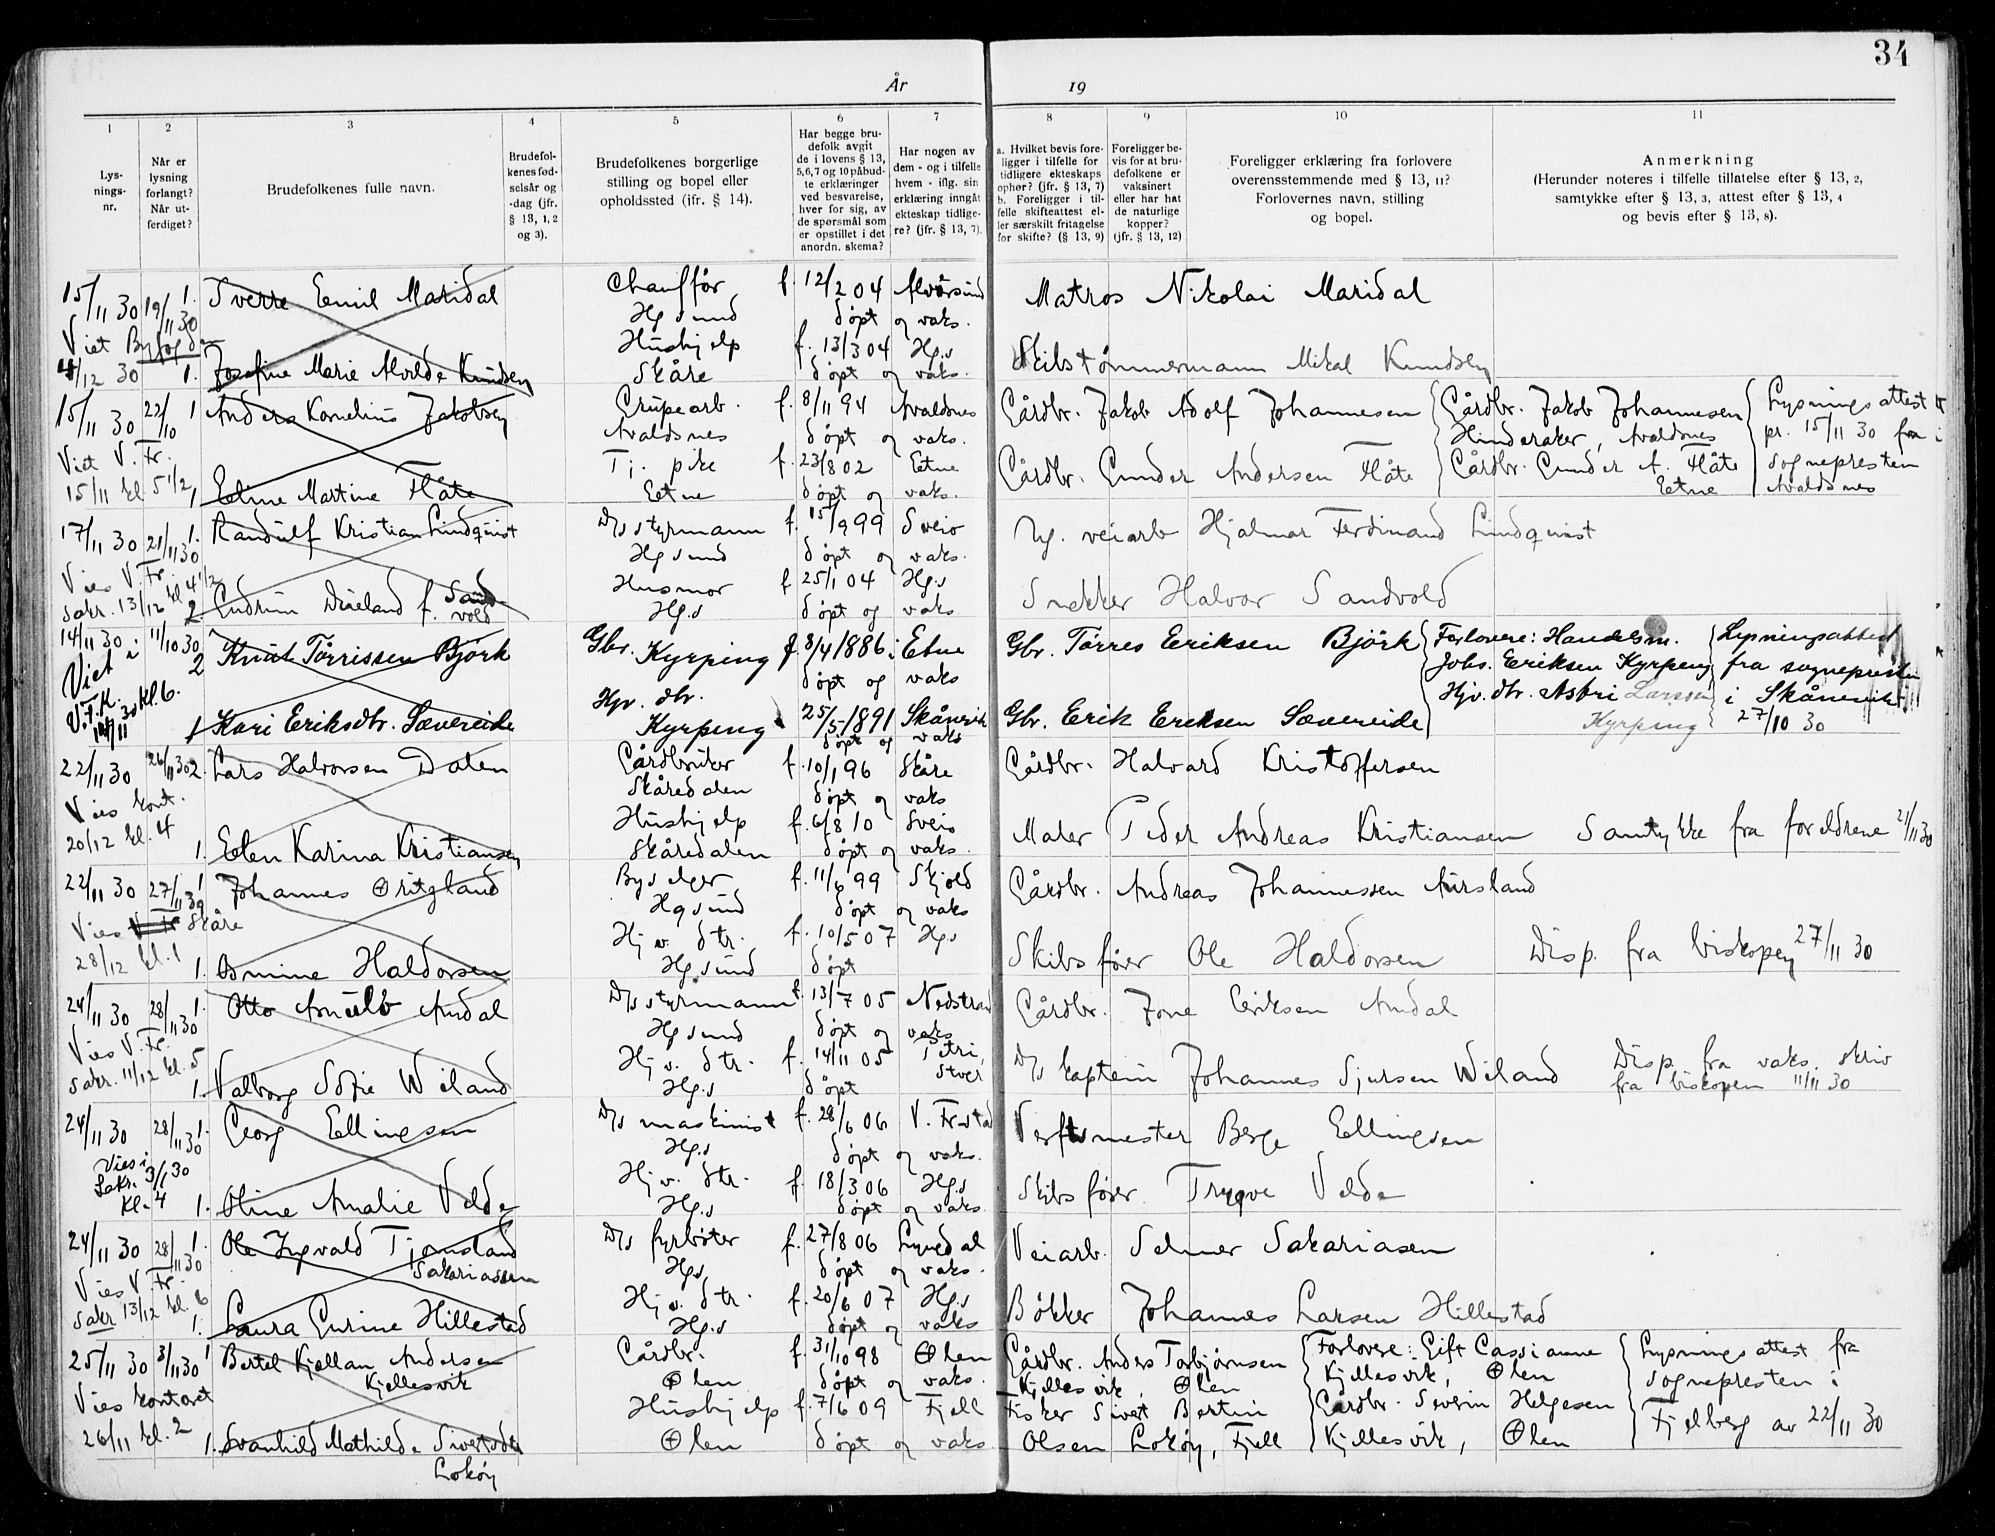 34
År 19
1 2 3 4 5 6 7 8 9 10 11
Lys-
nings-
nr.
Når er
lysning
forlangt?
Når ut-
ferdiget?
Brudefolkenes fulle navn.
Brudefol-
kenes fød-
selsår og
-dag (jfr.
§ 13, 1, 2
og 3).
Brudefolkenes borgerlige
stilling og bopel eller
opholdssted (jfr. § 14).
Har begge bru-
defolk avgit
de i lovens § 13,
5, 6, 7 og 10 påbud-
te erklæringer
ved besvarelse,
hver for sig, av
de spørsmål som
er opstillet i det
anordn. skema?
Har nogen av
dem - og i tilfelle
hvem - iflg. sin
erklæring inngått
ekteskap tidlige-
re? (jfr. § 13, 7).
a. Hvilket bevis fore-
ligger i tilfelle for
tidligere ekteskaps
ophør? (jfr. § 13, 7)
b. Foreligger i til-
felle skifteattest el-
ler særskilt fritagelse
for skifte? (§ 13, 9)
Foreligger be-
vis for at bru-
defolkene er
vaksinert
eller har hat
de naturlige
kopper?
(jfr. § 13, 12)
Foreligger erklæring fra forlovere
overensstemmende med § 13, 11?
Forlovernes navn, stilling
og bopel.
Anmerkning
(Herunder noteres i tilfelle tillatelse efter § 13, 2,
samtykke efter § 13, 3, attest efter § 13, 4
og bevis efter § 13, 8).
15/11 30 19/11 30 1. Sverre Emil Maridal Chauffør f. 12/2 04 Matros Nikolai Maridal
Hgsund døpt og vaks.
Viet Byfogden
4/12 30 1. Josefine Marie Alvilde Knudsen Hushjelp f. 13/3 04 Hg.s Skibstømmermann Mikal Knudsen
Skåre døpt og vaks.
15/11 30 22/10 1 Anders Kornelius Jakobsen Grubearb. f. 8/11 94 Avaldsnes Gårdbr. Jakob Adolf Johannesen Gårdbr. Jakob Johannesen Lysningsattest
Avaldsnes døpt og vaks. Hinderaker, Avaldsnes pr. 15/11 30 fra
Viet V. Fr.
15/11 kl. 5 1/2 1 Eeline Martine Flåte Tj. pike f. 23/8 02 Eetne Gårdbr. Gunder Andersen Flåte Gårdbr. Gunder A. Flåte Sognepresten i
Eetne døpt og vaks. Eetne Avaldsnes
17/11 30 21/11 30 1. Randulf Kristian Lindqvist D/s styrmann f. 15/9 99 Sveio veiarb Hjalmar Ferdinand Lindqvist
Hgsund døpt og vaks.
Vies V. Fr.
sakr. 13/12 kl 4 1/2 2 Gudrun f. Sand-
vold Husmor f. 25/1 04 Hg.s Snekker Halvor Sandvold
Hg.s døpt og vaks
14/11 30 11/10 30 2 Knut Tørrissen Björk Gbr. Kyrping f. 8/4 1886 i Etne Gbr. Tørres Eriksen Björk Forlovere: Handelsm. Lysningsattest
døpt og vaks Johs. Eriksen Kyrping fra sognepresten
Viet i V.F.K. 14/11 30 kl 6. 1 Kari Eriksdtr. Sævereide Hjv. dtr. Kyrping 25/5 1891 Skånevik Gbr. Erik Eriksen Sævereide Hjv. dtr. Astri Larssen Kyrping i Skånevik 27/10 30
døpt og vaks
22/11 30 26/11 30 2. Lars Halvorsen Dalen Gårdbruker f. 10/1 96 Skåre Gårdbr. Halvard Kristoffersen
Skåredalen døpt og vaks
Vies kont.
20/12 kl. 4 1. Eelen Karina Kristiansen Hushjelp f. 6/8 10 Sveio Maler Peder Andreas Kristiansen Samtykke fra foreldrene 21/11 30
Skåredalen døpt og vaks.
22/11 30 27/11 30 1 Johannes Østigland Byselger f. 11/6 99 Skjold Gårdbr. Andreas Johannessen Aursland
Hgsund døpt og vaks
Vies Skåre
28/12 kl. 1 1. Haldorsen Hjv. dtr. f. 10/5 07 Hg.s Skibsfører Ole Haldorsen Disp. fra biskopen 27/11 30
Hgsund døpt
24/11 30 28/11 30 1. Otto Arnulv Audal D/s styrmann f. 13/7 05 Nedstrand Gårdbr. Jone Eriksen Audal
Hgsund døpt og vaks
Vies V. Fr.
sakr. 11/12 kl. 5 1. Valborg Sofie Wiland Hjv. dtr. f. 14/11 05 Petri, D/s kaptein Johannes Sjursen Wiland Disp. fra vaks. skriv
Hg.s døpt fra biskopen 11/11 30
24/11 30 28/11 30 1. Georg Ellingsen D/s maskinist f. 28/6 06 V. Fr.stad Verftsmester Berge Ellingsen
Hg.s døpt og vaks.
Vies i
Sakr. 3/1 30
Kl. 4 1. Oline Amalie Velde Hjv. dtr. f. 18/3 06 Hg.s Skibsfører Trygve Velde
Hg.s døpt og vaks.
24/11 30 28/11 30 1. Ole Ingvald Tjomsland
Sakariassen D/s fyrbøter f. 27/8 06 Lyngdal Veiarb. Selmer Sakariasen
Hg.s døpt og vaks.
Vies V. Fr.
sakr 13/12 kl. 6 1. Laura Gurine Hillestad Hjv. dtr. f. 20/6 07 Hg.s Bøkker Johannes Larsen Hillestad
Hg.s døpt og vaks
25/11 30 3/11 30 1 Bertel Kjellan Andersen
Kjellesvik Gårdbr. f. 31/10 98 Ølen Gårdbr. Anders Torbjørnsen Forlovere: Gift Cassianne Lysningsattest fra
Ølen døpt og vaks. Kjellesvik, Ølen Kjellesvik, Ølen sognepresten i
Vies kontoret
26/11 kl. 2 1. Svanhild Mathilde Sivertsdtr
Lokøy Hushjelp f. 7/6 09 Fjell Fisker Sivert Bertin Gårdbr. Severin Helgesen Fjelberg av 22/11 30
Ølen døpt og vaks Olsen Lokøy, Fjell Kjellesvik, Ølen